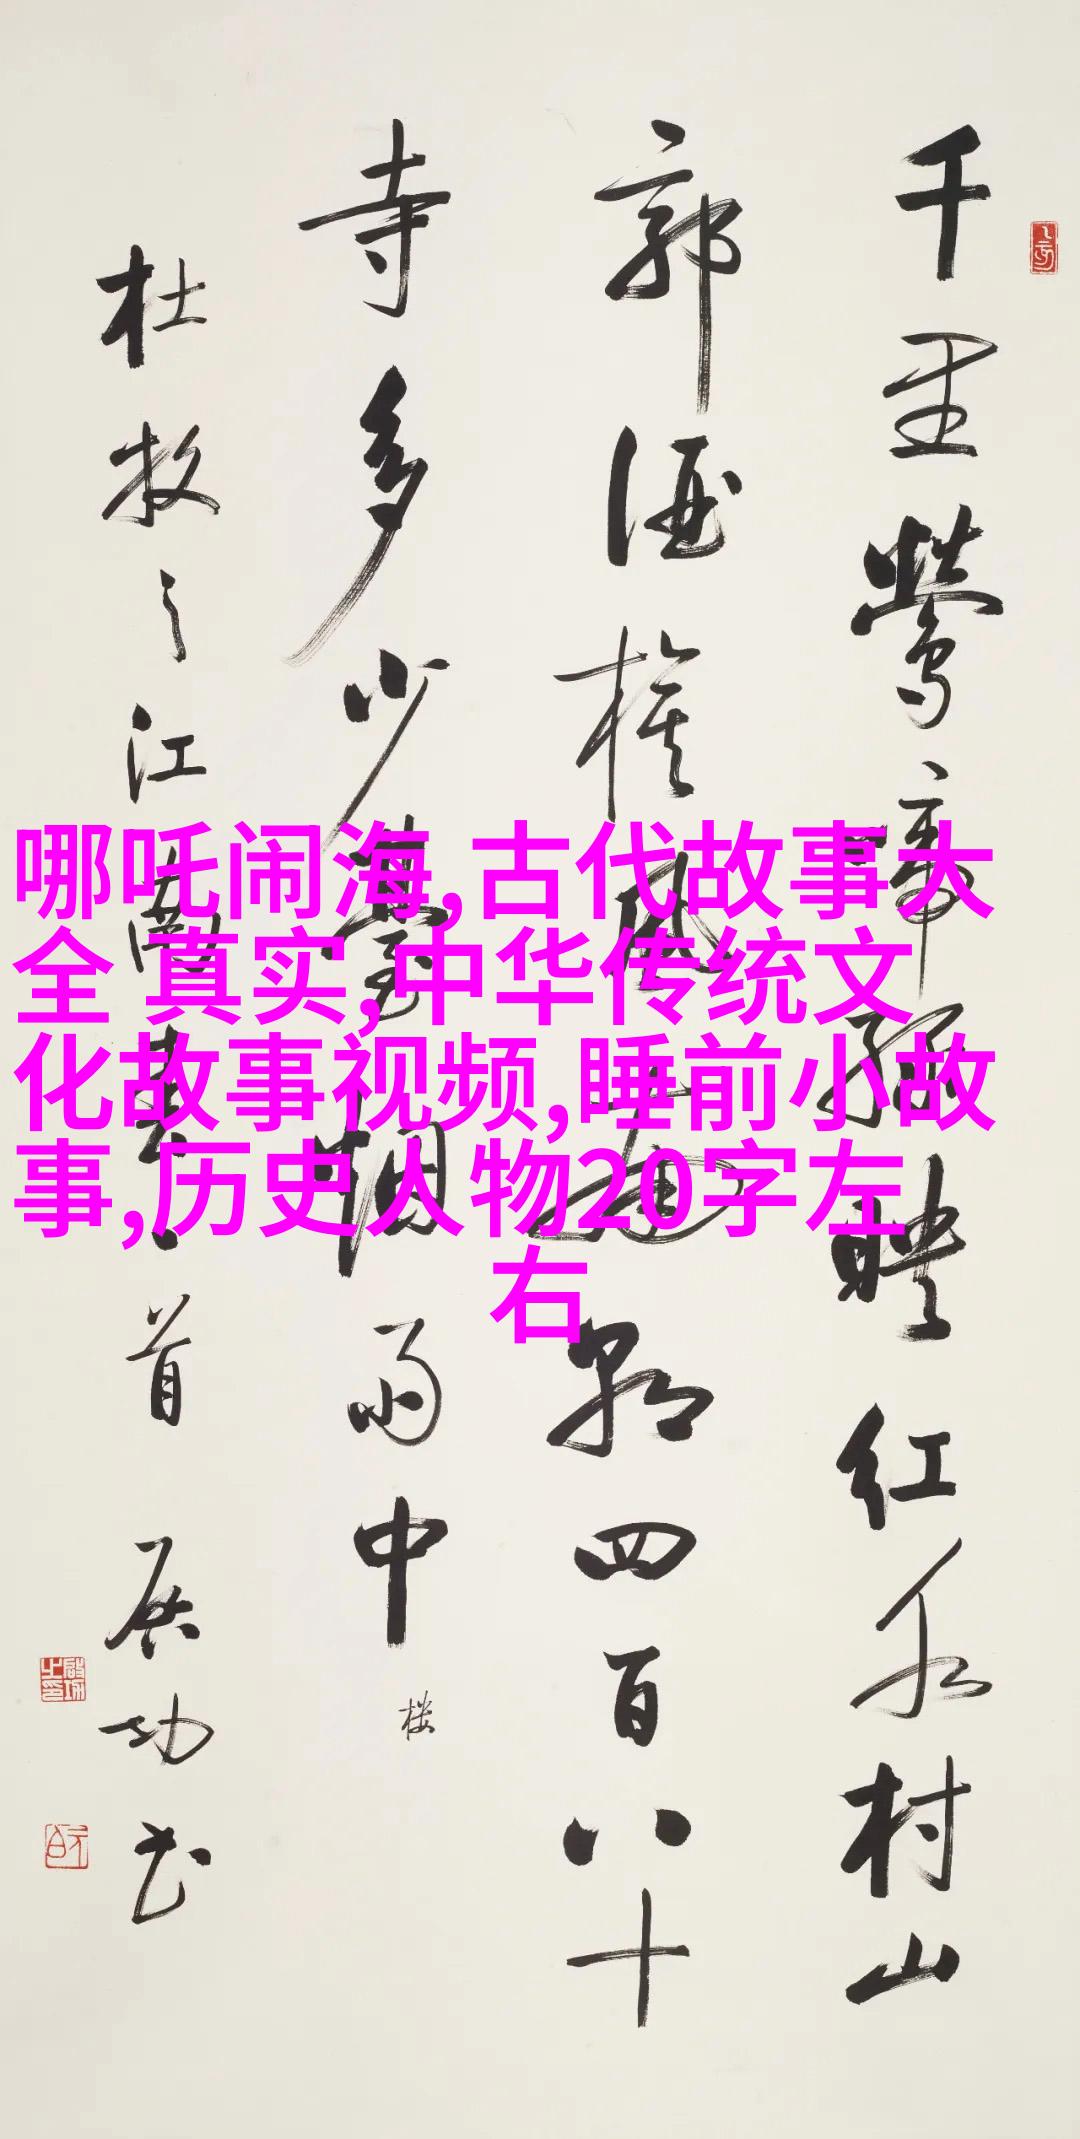 千里鶯啼綠映紅水村山
郭酒旗風南朝四百八十
寺多少臺烟雨中
楼
杜牧之江南春一首 启功书
哪吒闹海,古代故事大
全 真实,中华传统文
化故事视频,睡前小故
事,历史人物20字左
右